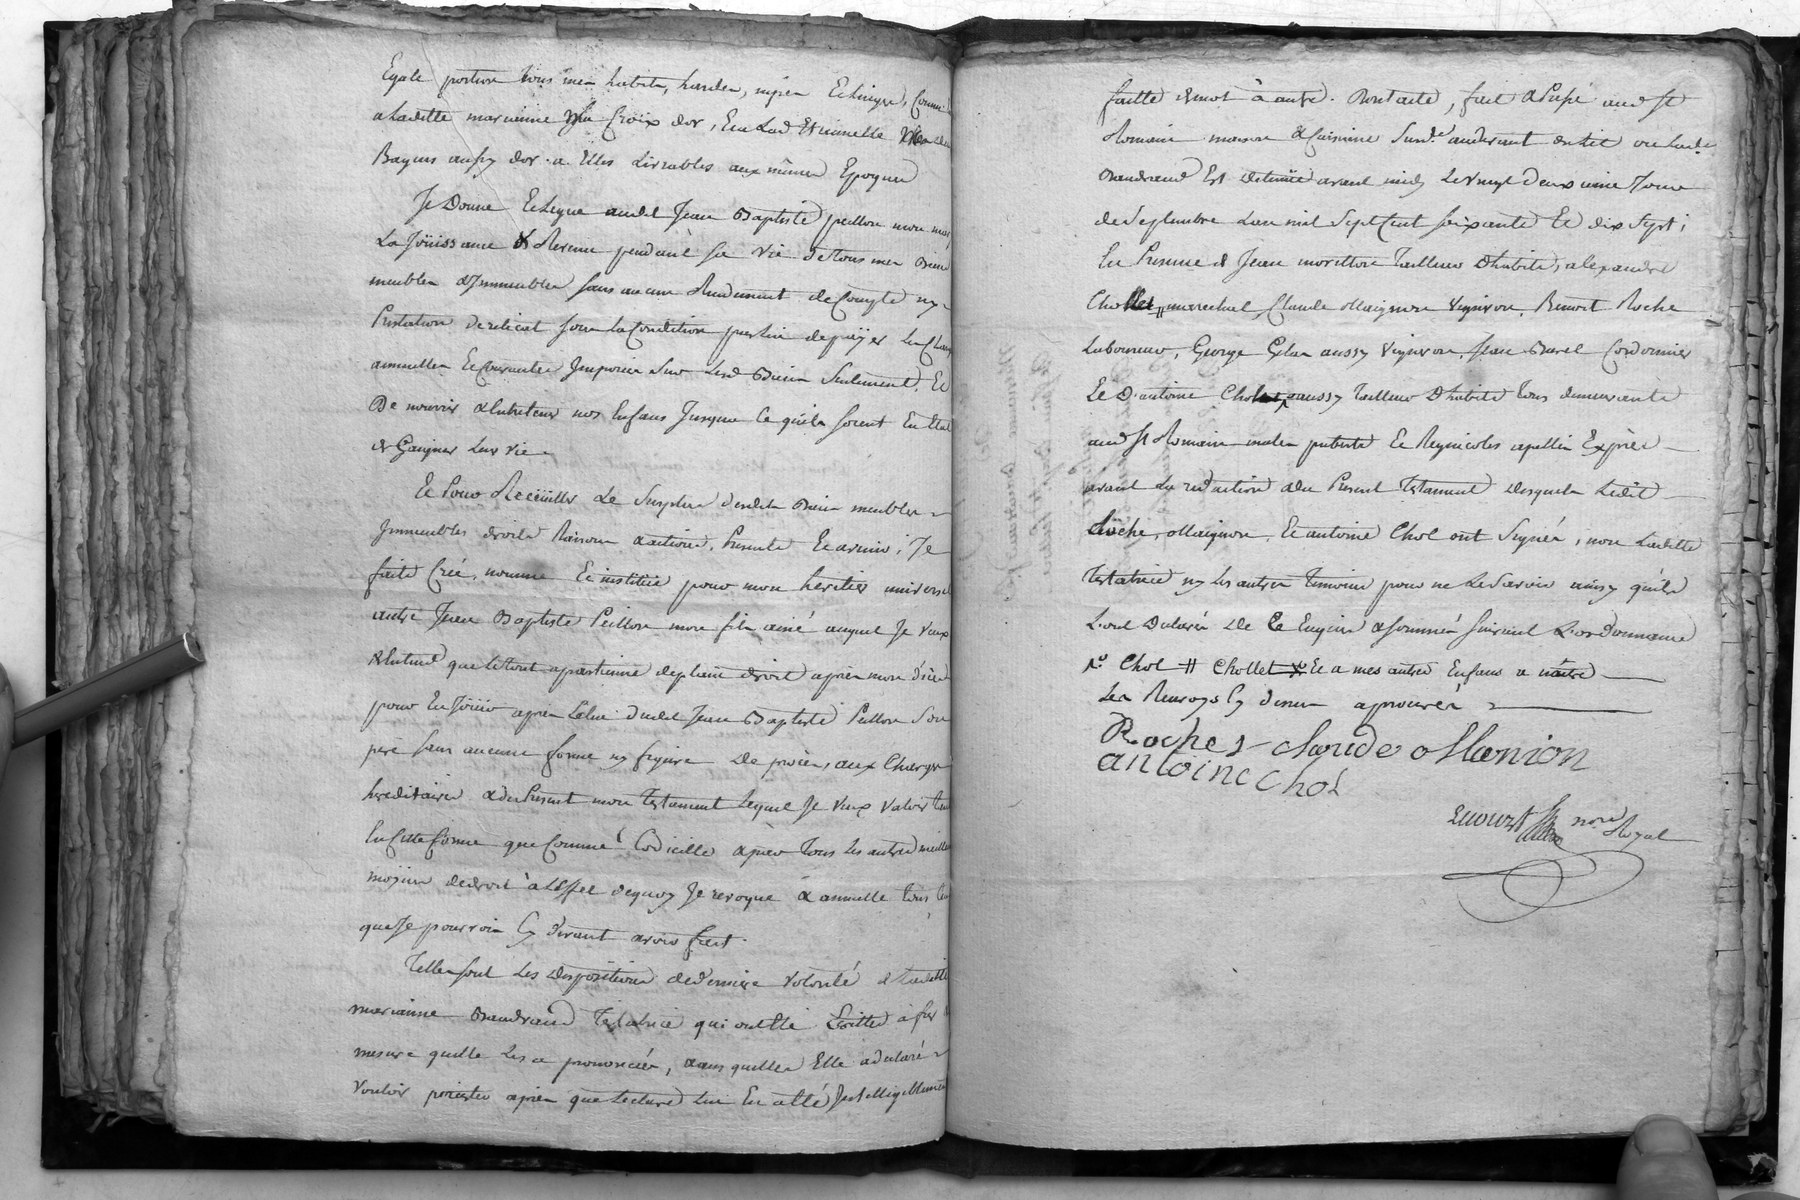 Egale portion tous mes habits, hardes, nipes Et linges, Comme
a Laditte marianne Croix dor, Une Bague
Bagues aussy dor a Elles Livrables aux mêmes Epoques
Je Donne Et Legue audit Jean Baptiste peillon mon mary
La Joüissance & Revenu pendant sa Vie de tous mes Biens
meubles & Immeubles sans aucun Rendement de Compte ny
Prestation de relicat sous la Condition par lui de païyer les Charges
annuelles Et Courantes Imposées Sur Lesd Biens Seulement, Et
De nourrir & Entretenir nos Enfans Jusques Ce qu'ils soient En Etat
de Gaigner Leur Vie
Et Pour Receüillir Le Surplus desdits Biens meubles
Immeubles droits Raisons & actions, Presents Et avenir, Je
faits Créé, nomme Et institue pour mon heritier universel
autre Jean Baptiste Peillon mon fils ainé auquel Je Veux
& Entend que le tout apartienne de plain droit après mon décès
pour En Joüir après Celui dudit Jean Baptiste Peillon Son
pere sans aucune forme ny figure De procès, aux Charges
hereditaires & du Present mon Testament Lequel Je Veux Valoir tant
En Cette forme que Comme Codicille & par Tous Les autres meilleurs
moyens de droit à L'effet dequoy Je revoque & annulle tous ceux
que Je pourrois Cy devant avoir fait.
Telles sont Les Dispositions de derniere Volonté de Laditte
marianne Baudrand Testatrice qui ont Eté Ecrittes à fur &
mesure quelle Les a prononcées, dans quelles Elle a declaré
Vouloir persister après que Lecture lui En a Eté Intelligiblement
faitte de mot à autre. Dont acte, fait & Passé aud St
Romain maison & Cuisine Susd.
Baudrand Est Detenüe avant midy Le Vingt deuxieme Jour
de Septembre L'an mil Sept Cent soixante Et dix Sept;
En Presence de Jean morillon tailleur D'habits, alexandre
Chollet marechal, Claude Magnon Vigneron, Benoit Roche
Laboureur, George Gelas aussy Vigneron, Jean Burel Cordonnier
Et D'antoine Chol aussy tailleur D'habits tous demeurants
aud St Romain males puberts Et Regnicoles apellés Exprès
avant La redaction du Present Testament desquels Ledit
Roche, Magnon, Et antoine Chol ont Signés, non Laditte
testatrice ny les autres temoins pour ne Le Savoir ainsy qu'ils
L'ont Declarés De Ce Enquis & sommés suivant L'ordonnance
Chol # Chollet Et a mes autres Enfans a naître
Les Renvoys Cy dessus aprouvés
Roche claude Manion
antoine chol
nore Royal